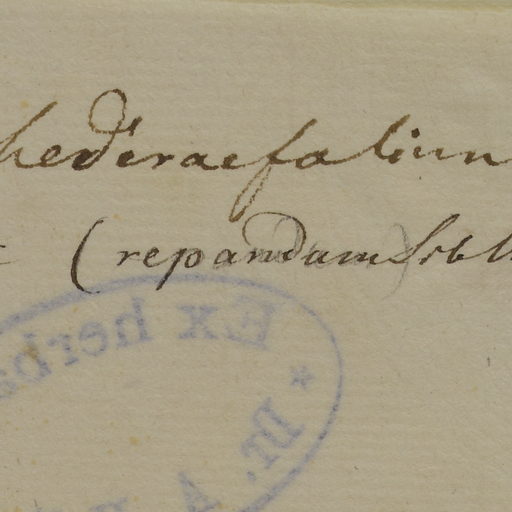 hederaefolium
(repandum Sibth
Ex herba
* Dr. A